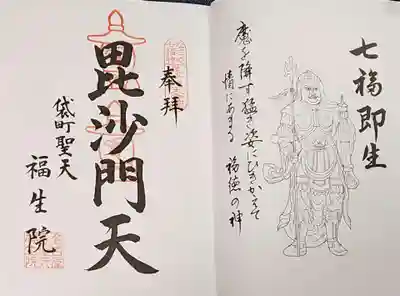 七福即生
魔を降す猛き姿にひきかへて
情にあまる 福徳の神
奉拝
毘沙門天
袋町聖天
福生院